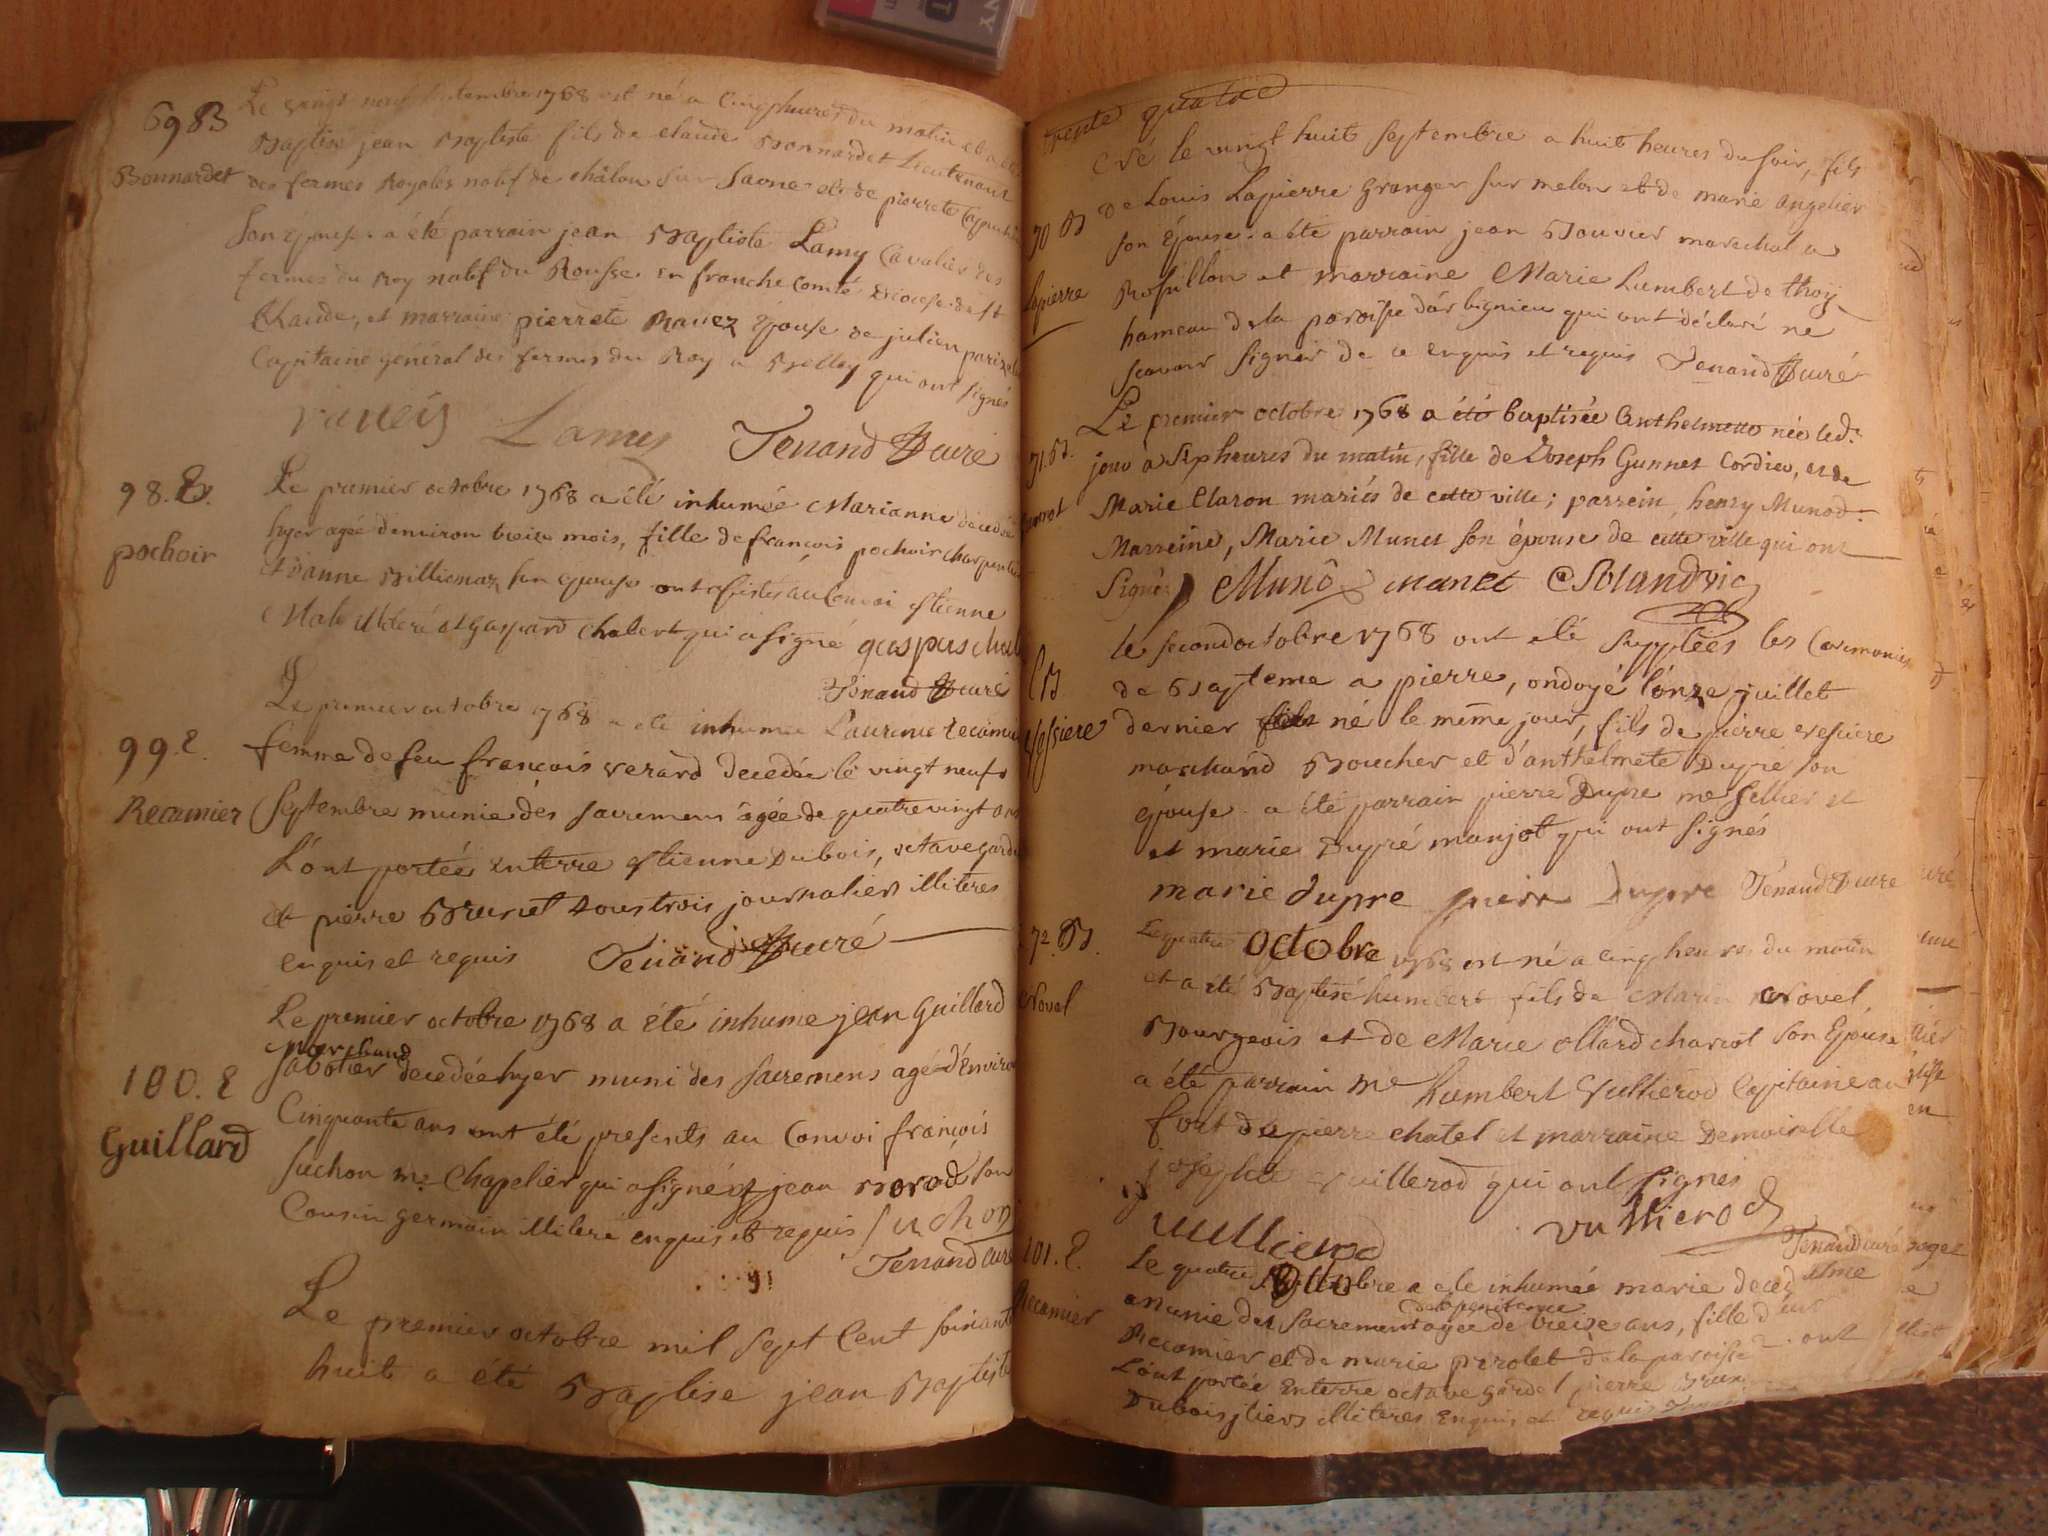 69 B
Bonnardet
Le vingt neuf septembre 1768 est né a cinq heures du matin et a été
Baptisé jean Baptiste fils de claude Bonnardet Lieutenant
des fermes Royales natif de châlon sur Saone et de pierrete
son épouse. a été parrain jean Baptiste Lamy Cavalier des
fermes du Roy natif du Rousse en franche comté Diocese de st
Claude, et marraine pierrete Ravez épouse de julien
Capitaine général des fermes du Roy a Belley qui ont signés
Lamy Tenand curé
98. E.
pochoir
Le premier octobre 1768 a été inhumée Marianne decedée
hyer agée denviron treize mois, fille de françois pochoir charpentier
et danne Billiemaz son épouse ont assistés au Convoi Etienne
illiteré et Gaspard chabert qui a signé
Tenand curé
99. E.
Recamier
Le premier octobre 1768 a été inhumée Laurence recamier
femme de feu françois verard decedée le vingt neuf
septembre munie des sacremens agée de quatre vingt ans
L'ont portée enterre Etienne Dubois, octave gardet
et pierre Brunet tous trois journaliers illiteres
enquis et requis Tenand curé
100. E
Guillard
Le premier octobre 1768 a été inhume jean Guillard
marchand
sabotier decedée hyer muni des sacremens agé d'environ
Cinquante ans ont été presents au Convoi françois
suchon me Chapelier qui a signé et jean Borod son
Cousin germain illiteré enquis et requis suchon
Tenand curé
Le premier octobre mil sept cent soixante
huit a été Baptise jean Baptiste
trente quatre
70 B
Lapierre
né le vingt huit septembre a huit heures du soir, fils
de Louis Lapierre Granger sur melon et de marie angelier
son épouse. a été parrain jean Bouvier marechal a
Rossillon et marraine Marie Lambert de thoy
hameau de la paroisse d'arbignieu qui ont déclaré ne
scavoir signer de ce enquis et requis Tenand curé
71. B.
Le premier octobre 1768 a été baptisée Anthelmette née led.
jour a sept heures du matin, fille de Joseph Gunnet Cordier, et de
Marie Claron mariés de cette ville; parrein, henry Munod
Marreine, Marie Munet son épouse de cette ville qui ont
signé
C B
essiere
le second octobre 1768 ont été supplées les Ceremonies
de Bapteme a pierre, ondoyé l'onze juillet
dernier né le même jour, fils de pierre
marchand Boucher et d'anthelmete Dupré son
épouse. a été parrain pierre Dupre me sellier et
et marie Dupré manjot qui ont signés
marie dupre pierre Dupre Tenand curé
72. B.
Novel
Le quatre octobre 1768 est né a cinq heures du matin
et a été Baptisé humbert fils de Marin Novel
Bourgeois et de Marie ollard chariot son Epouse
a été parrain me humbert Vullierod Capitaine au
fort de pierre chatel et marraine Demoiselle
josephte vuillerod qui ont signés
vullierod
vullierod
Tenand curé
101. E.
Recamier
Le quatre octobre a été inhumée marie deced
de la penitence
munie des sacrement agée de treize ans, fille d
Recamier et de marie perolet de la paroisse
L'ont portée enterre octave gardet pierre Brun
Dubois illiteres Enquis et requis